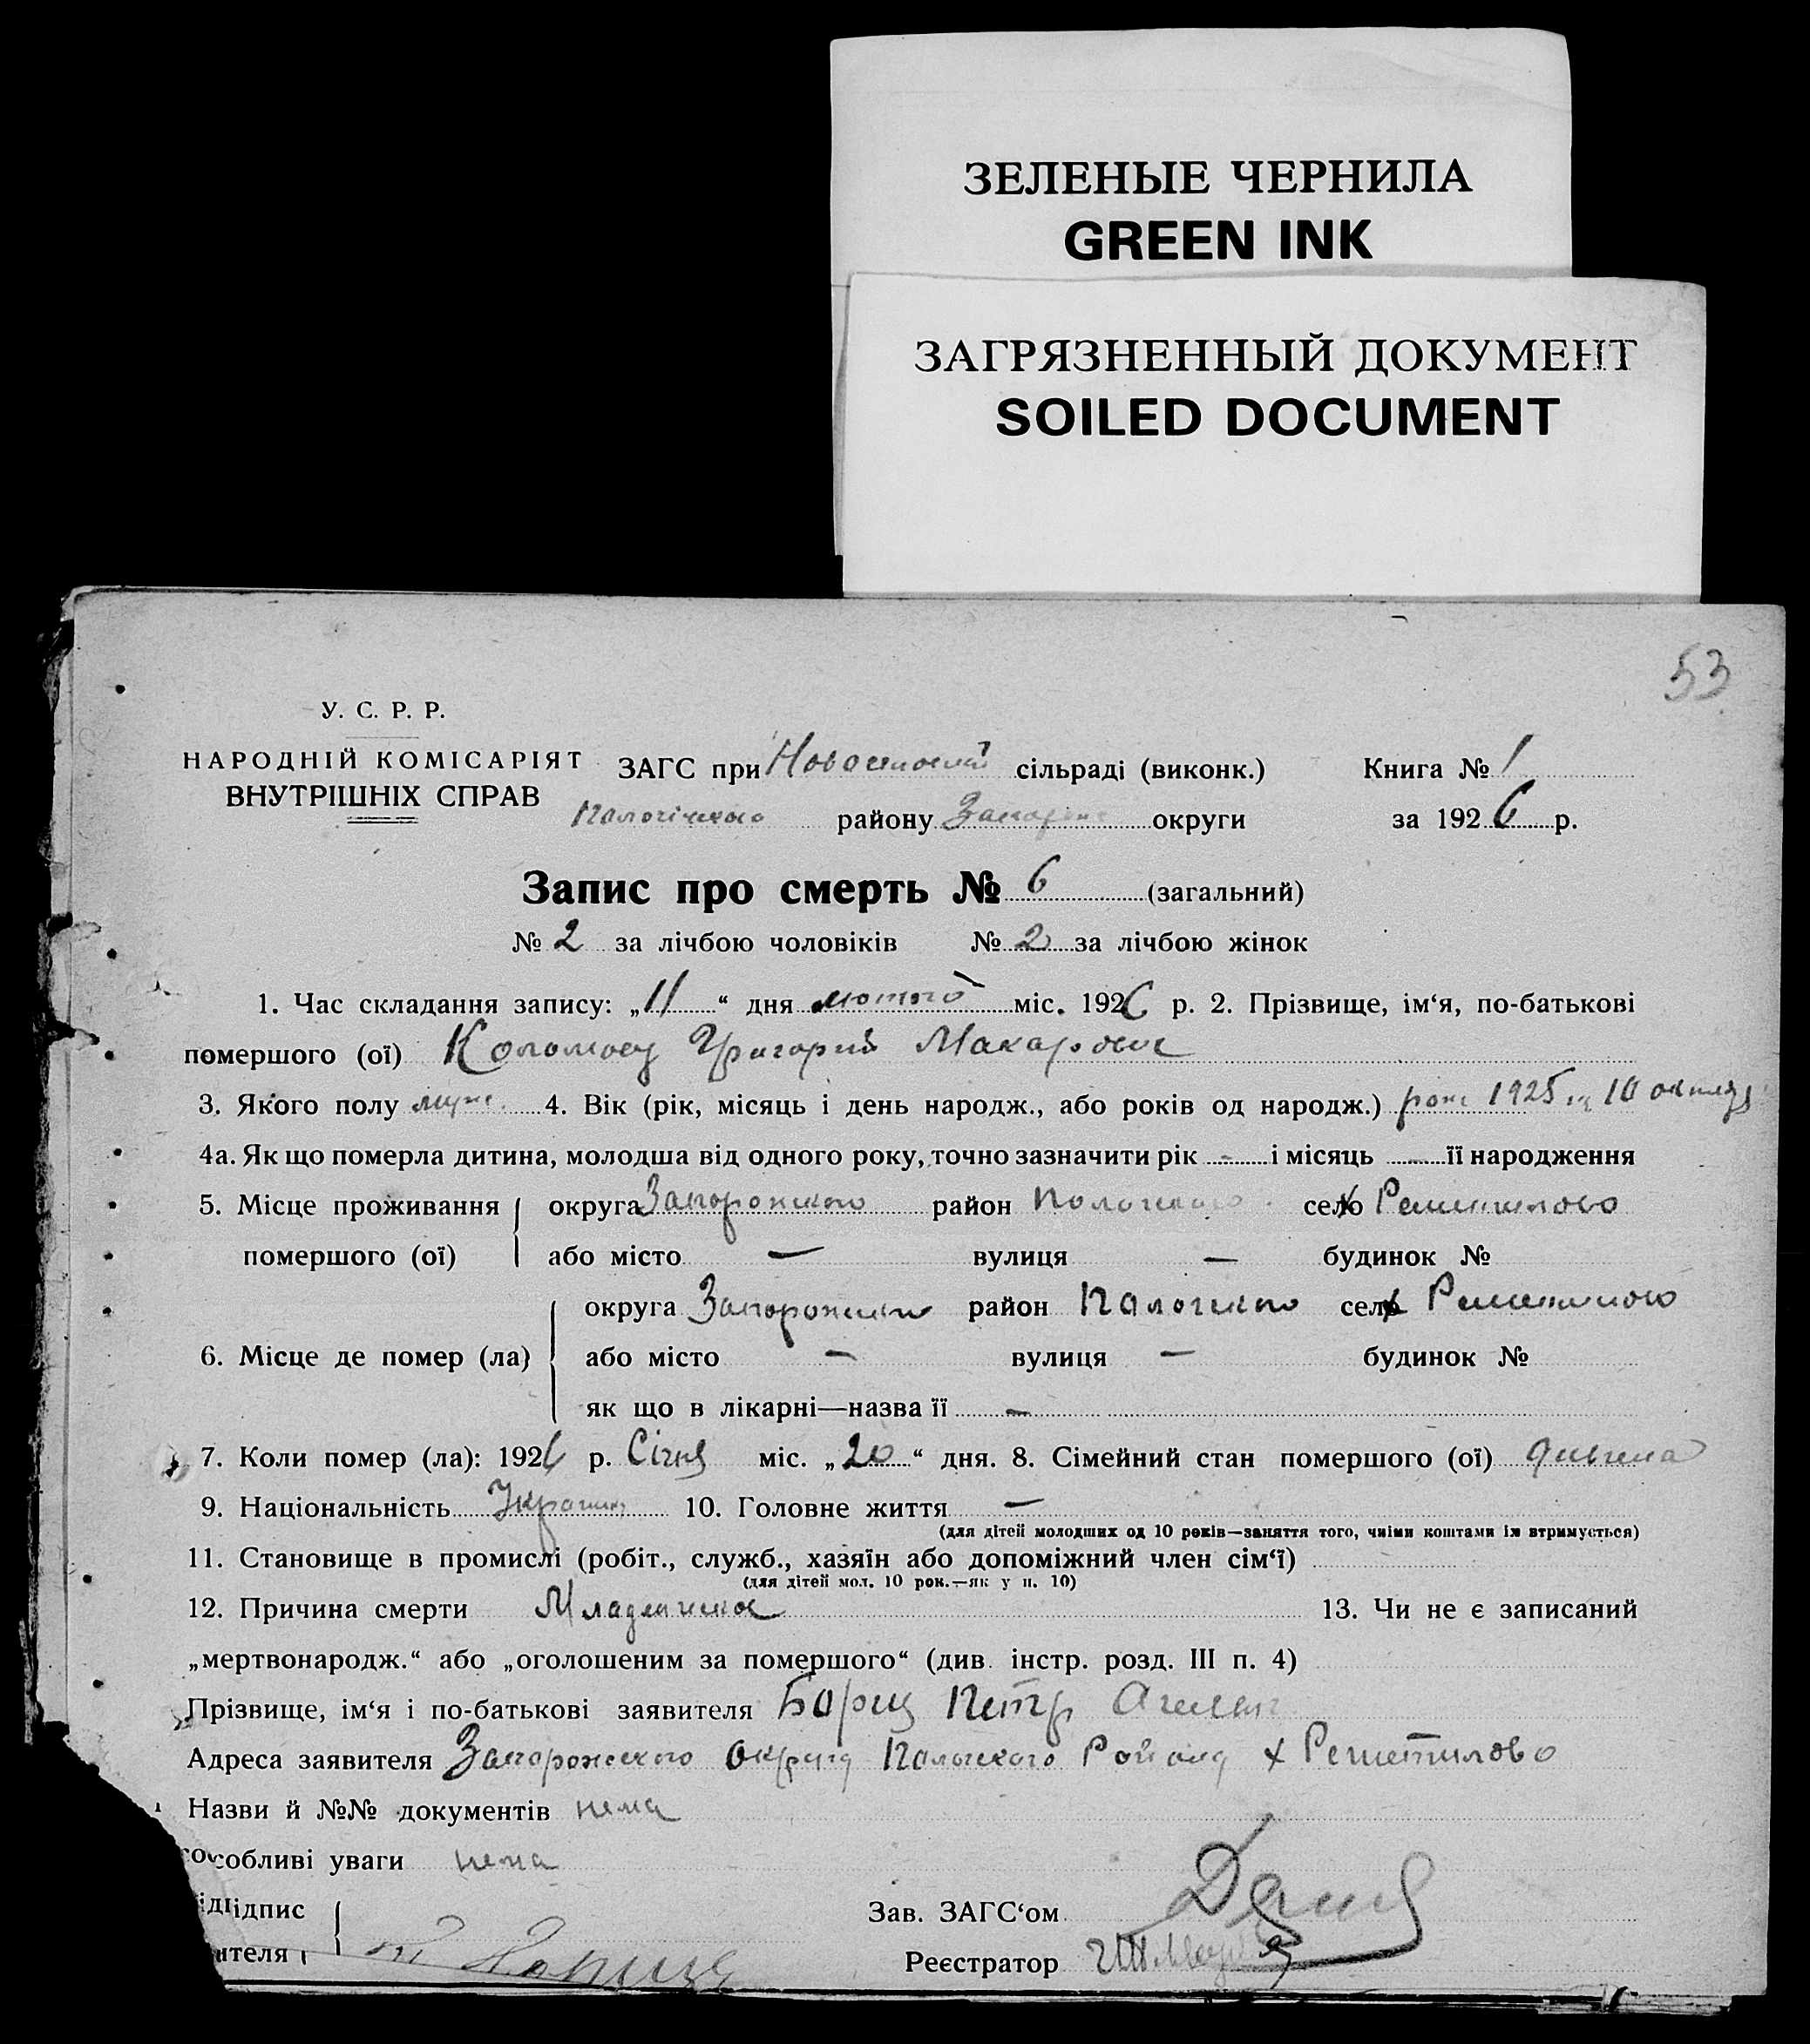 ЗЕЛЕНЫЕ ЧЕРНИЛА
GREEN INK
ЗАГРЯЗНЕННЫЙ ДОКУМЕНТ
SOILED DOCUMENT
53
У. С. Р. Р.
НАРОДНІЙ КОМІСАРІЯТ
ВНУТРІШНІХ СПРАВ
ЗАГС при сільраді (виконк.) Книга № 1
району округи за 1926 р.
Запис про смерть № 6 (загальний)
№ 2 за лічбою чоловіків № 2 за лічбою жінок
1. Час складання запису: „11“ дня лютого міс. 1926 р. 2. Прізвище, ім‘я, по-батькові
помершого (ої) Коломоец Григорий Макарович
3. Якого полу муж. 4. Вік (рік, місяць і день народж., або років од народж.) 1925 10
4а. Як що померла дитина, молодша від одного року, точно зазначити рік - і місяць - її народження
5. Місце проживання округа Запорожского район Пологского село х Решетилово
помершого (ої) або місто — вулиця — будинок №
округа Запорожского район Пологского село х
6. Місце де помер (ла) або місто — вулиця — будинок №
як що в лікарні—назва її —
7. Коли помер (ла): 1926 р. Січня міс. „20“ дня. 8. Сімейний стан помершого (ої)
9. Національність 10. Головне життя —
(для дітей молодших од 10 років—заняття того, чиїми коштами їх втримується)
11. Становище в промислі (робіт., служб., хазяїн або допоміжний член сім‘ї)
(для дітей мол. 10 рок.—як у п. 10)
12. Причина смерти 13. Чи не є записаний
„мертвонародж.“ або „оголошеним за помершого“ (див. інстр. розд. III п. 4)
Прізвище, ім‘я і по-батькові заявителя Петр
Адреса заявителя Запорожского Округа Пологского х Решетилово
Назви й №№ документів нема
особливі уваги нема
ідпис Зав. ЗАГС‘ом
ителя Реєстратор